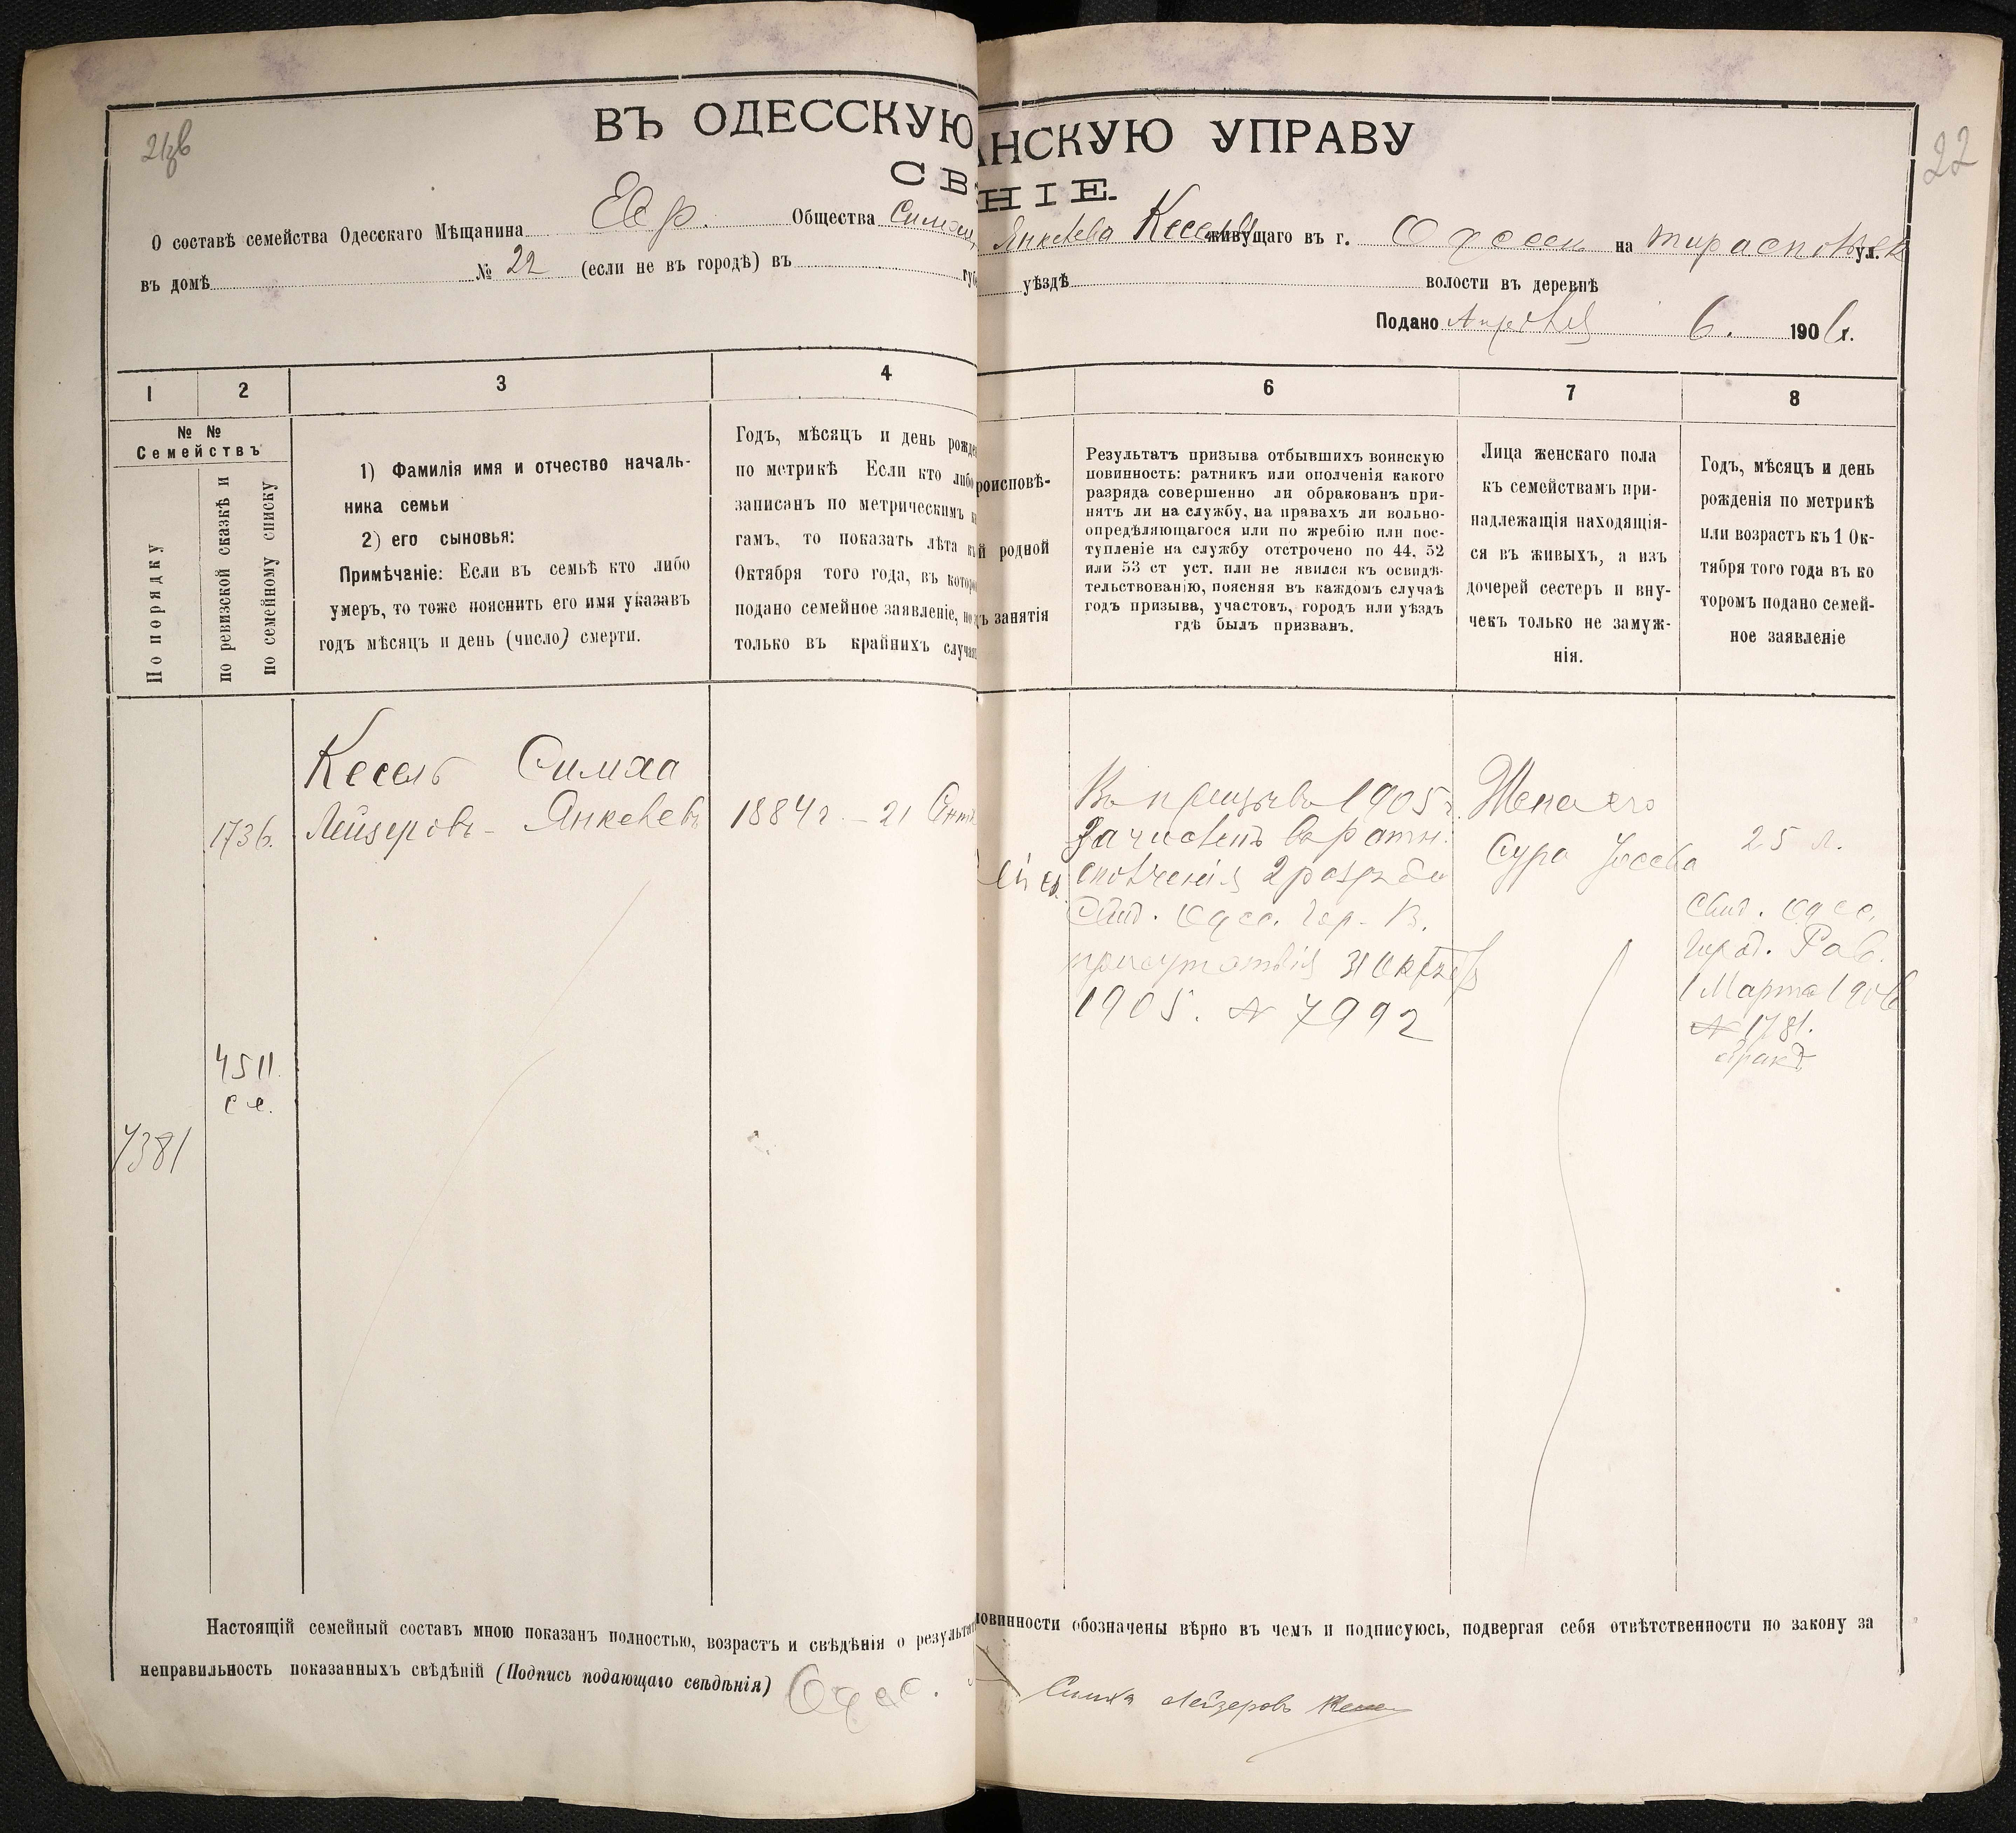 ВЪ ОДЕССКУЮ АНСКУЮ УПРАВУ
СВ НІЕ.
22
О составѣ семейства Одесскаго Мѣщанина Евр. Общества Симхи Янкелева Кесель живущаго въ г. Одессы на Тираспольск ул.
въ домѣ № 22 (если не въ городѣ) въ губ уѣздѣ волости въ деревнѣ
Подано Апрѣля 6. 1906 г.
1 2 3 4 6 7 8
№ №
Семействъ
По порядку
по ревизской сказкѣ и
по семейному списку
1) Фамилія имя и отчество началь-
ника семьи
2) его сыновья:
Примѣчаніе: Если въ семьѣ кто либо
умеръ, то тоже пояснить его имя указавъ
годъ мѣсяцъ и день (число) смерти.
Годъ, мѣсяцъ и день рожде
по метрикѣ Если кто либо
записанъ по метрическимъ к
гамъ, то показать лѣта къ
Октября того года, въ котор
подано семейное заявленіе, но
только въ крайнихъ случа
роисповѣ-
й родной
ъ занятія
Результатъ призыва отбывшихъ воинскую
повинность: ратникъ или ополченія какого
разряда совершенно ли обракованъ при-
нятъ ли на службу, на правахъ ли вольно-
опредѣляющагося или по жребію или пос-
тупленіе на службу отстрочено по 44, 52
или 53 ст уст. или не явился къ освидѣ-
тельствованію, поясняя въ каждомъ случаѣ
годъ призыва, участовъ, городъ или уѣздъ
гдѣ былъ призванъ.
Лица женскаго пола
къ семействамъ при-
надлежащія находящія-
ся въ живыхъ, а изъ
дочерей сестеръ и вну-
чекъ только не замуж-
нія.
Годъ, мѣсяцъ и день
рожденія по метрикѣ
или возрастъ къ 1 Ок-
тября того года въ ко
торомъ подано семей-
ное заявленіе
1736.
4511.
7381
Кесель Симха
Лейзеровъ - Янкелевъ
1884 г. - 21
Въ призывъ 1905 г.
Зачисленъ въ ратн.
ополченія 2 разряда
Свид. Одес. Гор. В.
присутствія 31 Октября
1905. № 7992
Жена его
Сура Іосева
25 л.
Свид. Одес.
Город. Рав.
1 Марта 1906
№ 1781.
Настоящій семейный составъ мною показанъ полностью, возрастъ и свѣдѣнія о результа повинности обозначены вѣрно въ чемъ и подписуюсь, подвергая себя отвѣтственности по закону за
неправильность показанныхъ свѣдѣній (Подпись подающаго свѣдѣнія) Одес. Симха Лейзеровъ Кесель